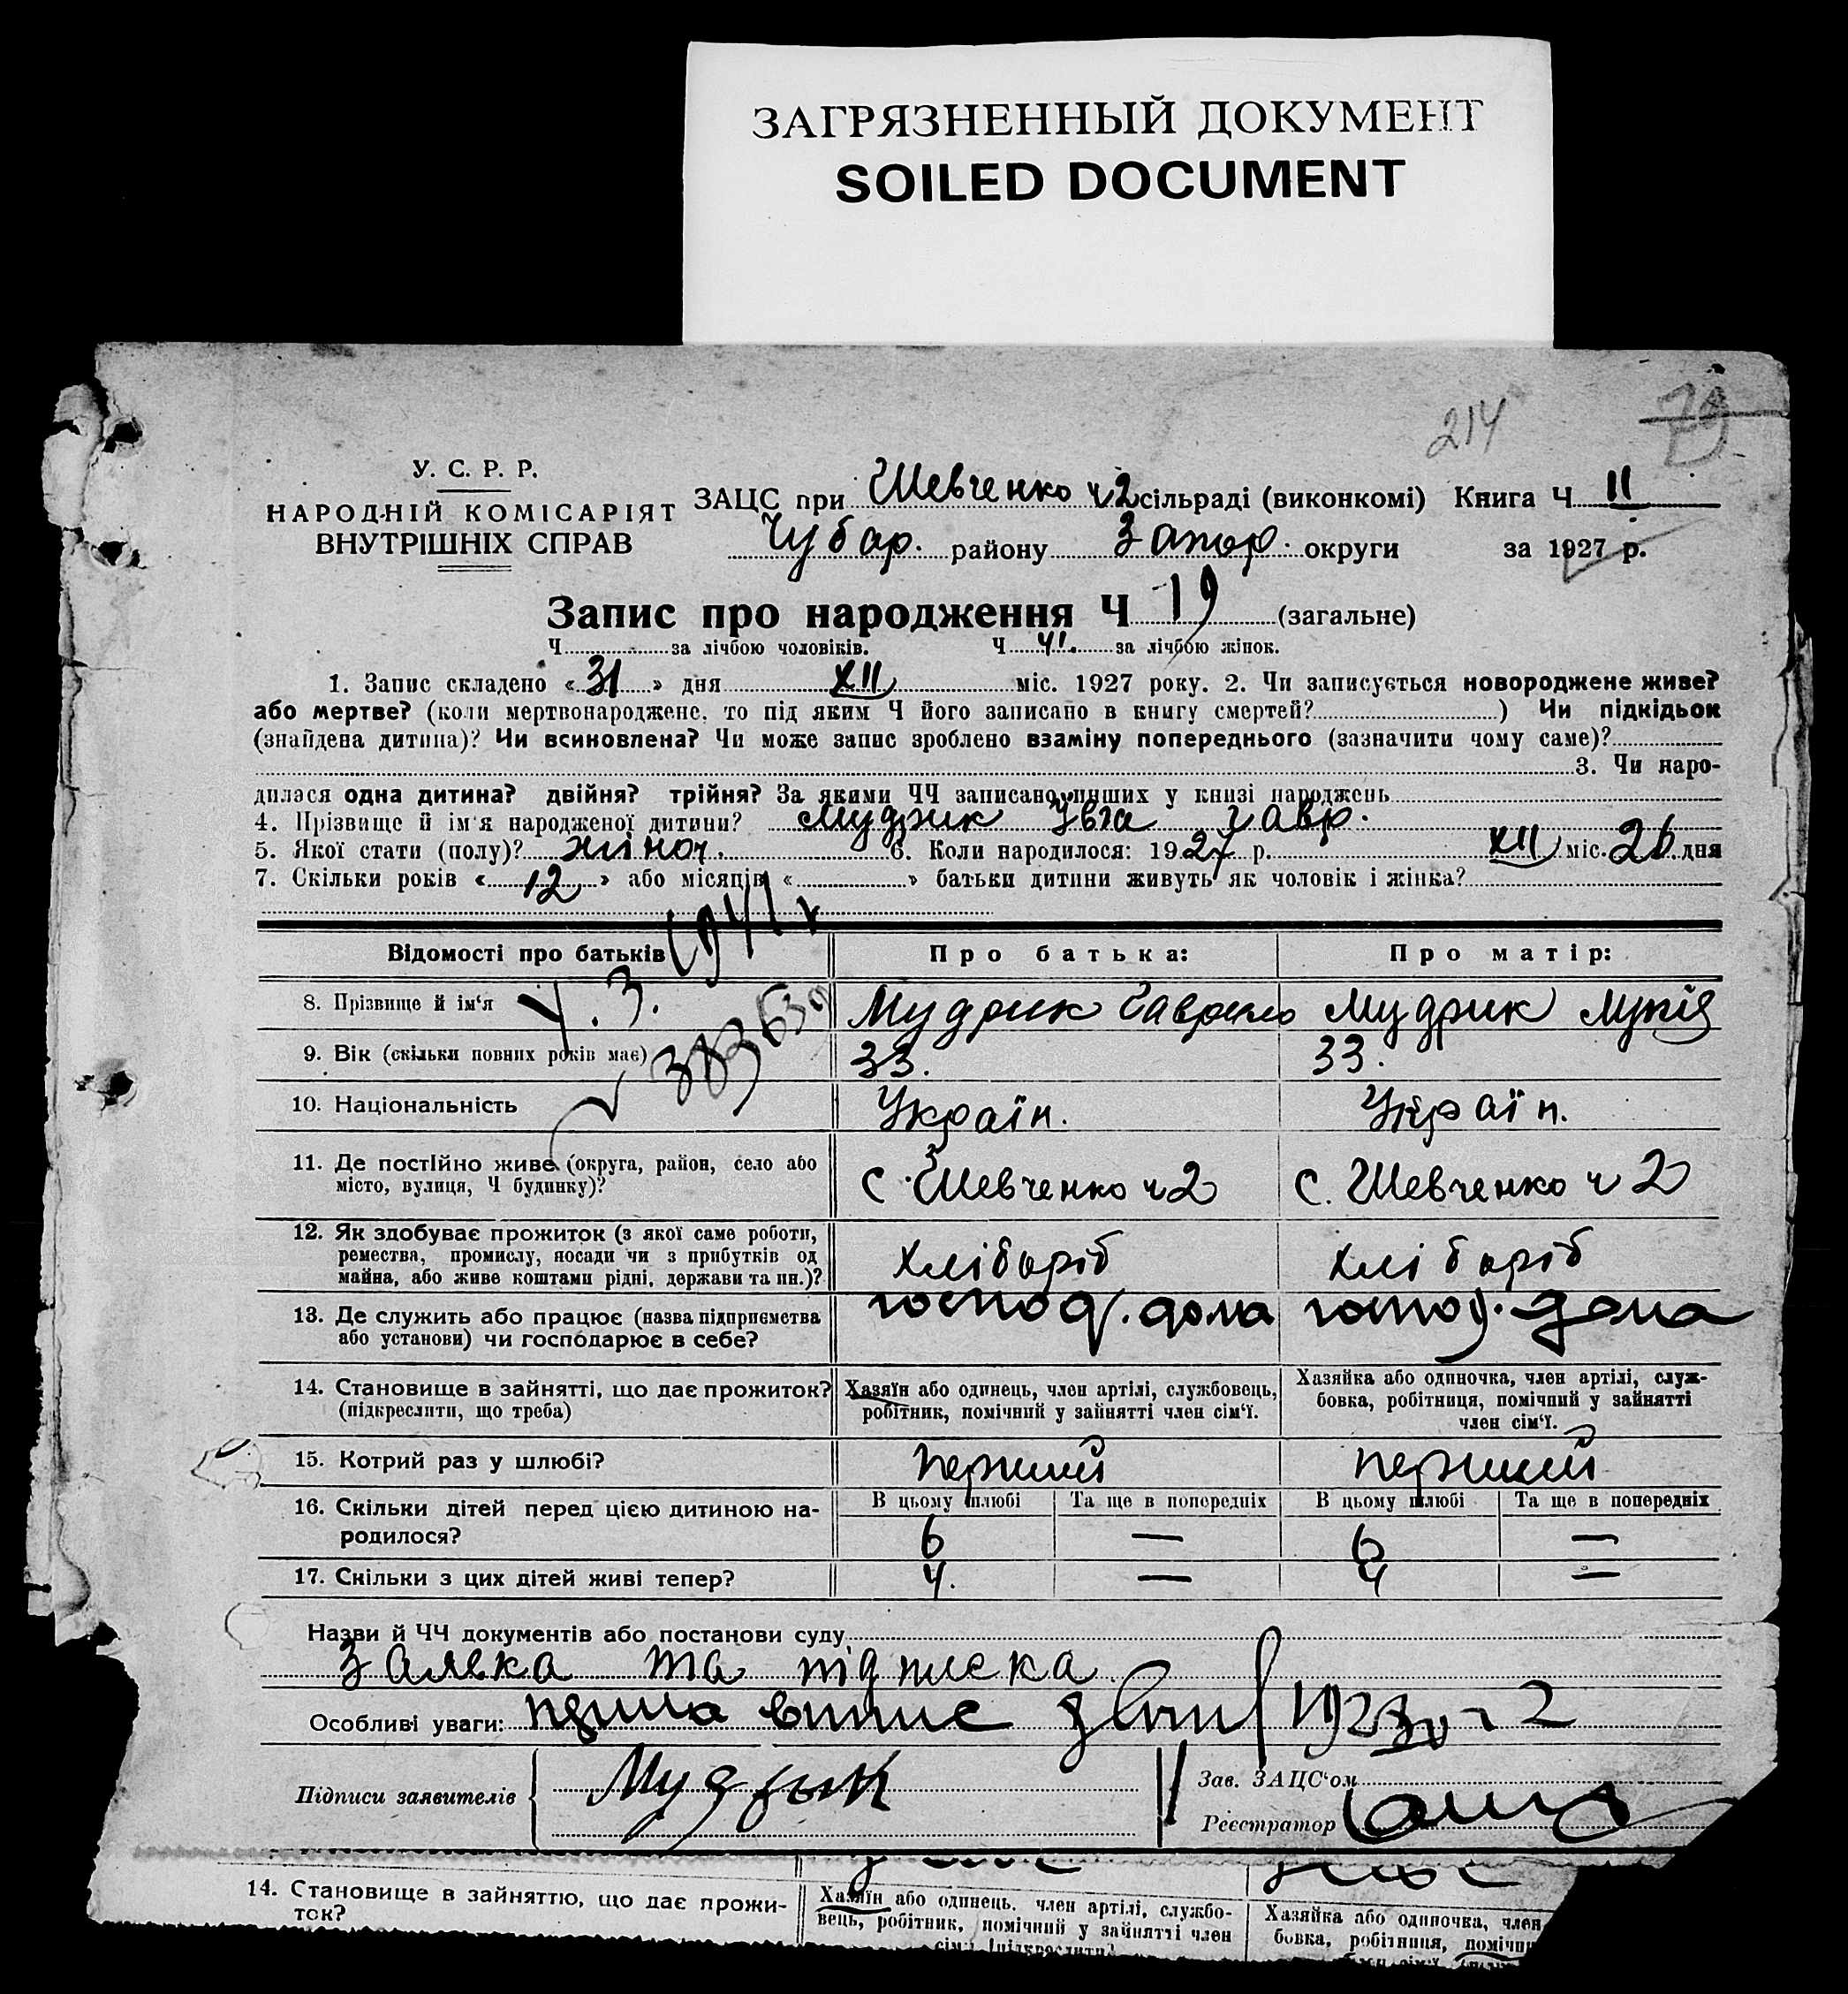 ЗАГРЯЗНЕННЫЙ ДОКУМЕНТ
SOILED DOCUMENT
214
79
У. С. Р. Р.
НАРОДНІЙ КОМІСАРІЯТ
ВНУТРІШНІХ СПРАВ
ЗАЦС при Шевченко ч2 сільраді (виконкомі) Книга Ч 11
Чубар. району Запор. округи за 1927 р.
Запис про народження Ч 19 (загальне)
Ч за лічбою чоловіків. Ч 41. за лічбою жінок.
1. Запис складено «31» дня XII міс. 1927 року. 2. Чи записується новороджене живе?
або мертве? (коли мертвонароджене, то під яким Ч його записано в книгу смертей?) Чи підкідьок
(знайдена дитина)? Чи всиновлена? Чи може запис зроблено взаміну попереднього (зазначити чому саме)?
3. Чи наро-
дилася одна дитина? двійня? трійня? За якими ЧЧ записано инших у книзі народжень
4. Прізвище й ім'я народженої дитини? Мудрик Івга Гавр.
5. Якої стати (полу)? жіноч. 6. Коли народилося: 1927 р. XII міс. 26 дня
7. Скільки років «12» або місяців « » батьки дитини живуть як чоловік і жінка?
Відомості про батьків
Про батька:
Про матір:
8. Прізвище й ім'я Мудрик Гаврило Мудрик
9. Вік (скільки повних років має) 33. 33.
10. Національність Україн. Україн.
11. Де постійно живе (округа, район, село або
місто, вулиця, Ч будинку)?
с. Шевченко ч2 с. Шевченко ч2
12. Як здобуває прожиток (з якої саме роботи,
ремества, промислу, посади чи з прибутків од
майна, або живе коштами рідні, держави та ин.)?
хлібороб хлібороб
13. Де служить або працює (назва підприємства
або установи) чи господарює в себе?
господ. дома господ. дома
14. Становище в зайнятті, що дає прожиток?
(підкреслити, що треба)
Хазяїн або одинець, член артілі, службовець,
робітник, помічний у зайнятті член сім'ї.
Хазяйка або одиночка, член артілі, служ-
бовка, робітниця, помічний у зайнятті
член сім'ї.
15. Котрий раз у шлюбі? перший перший
16. Скільки дітей перед цією дитиною на-
родилося?
В цьому шлюбі Та ще в попередніх В цьому шлюбі Та ще в попередніх
6 — 6 —
17. Скільки з цих дітей живі тепер? 4. — 4 —
Назви й ЧЧ документів або постанови суду
Заявка та підписка
Особливі уваги:
Підписи заявителів Мудрик
Зав. ЗАЦС'ом
Реєстратор
14. Становище в зайняттю, що дає прожи-
ток?
Хазяїн або одинець, член артілі, службо-
вець, робітник, помічний у зайнятті член
сім'ї (підкреслити)
Хазяйка або одиночка, член
бовка, робітниця, помічни